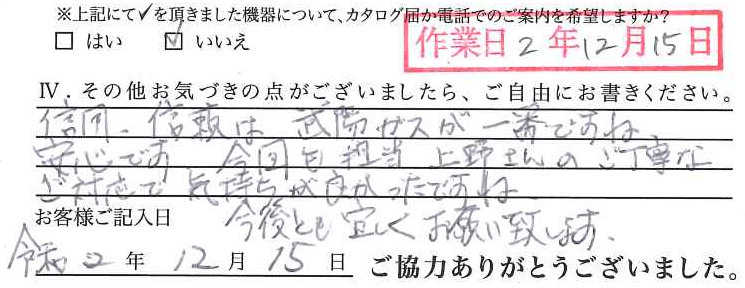 ※上記にて✓を頂きました機器について、カタログ届か電話でのご案内を希望しますか？
□ はい ☑ いいえ
作業日 2 年 12 月 15 日
Ⅳ．その他お気づきの点がございましたら、ご自由にお書きください。
信用、信頼は 武陽ガスが 一番ですね
安心です 今回も 担当 上野さんの ご丁寧な
ご対応で 気持ちが良かったですね
お客様ご記入日 今後とも 宜しく お願い致します、
令和 2 年 12 月 15 日 ご協力ありがとうございました。